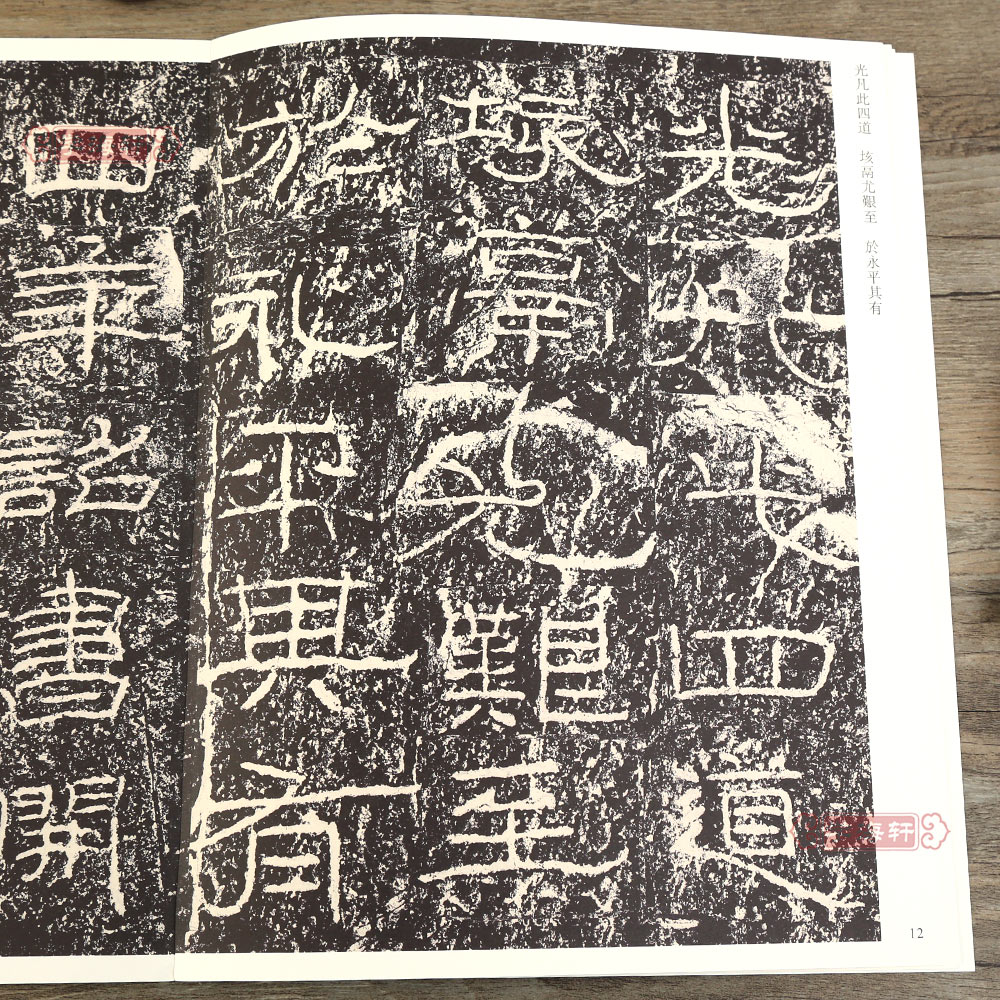 光凡此四道 垓鬲尤艱至 於永平其有
光凡此四道
垓鬲尤艱至
於永平其有
四年詔書開
12